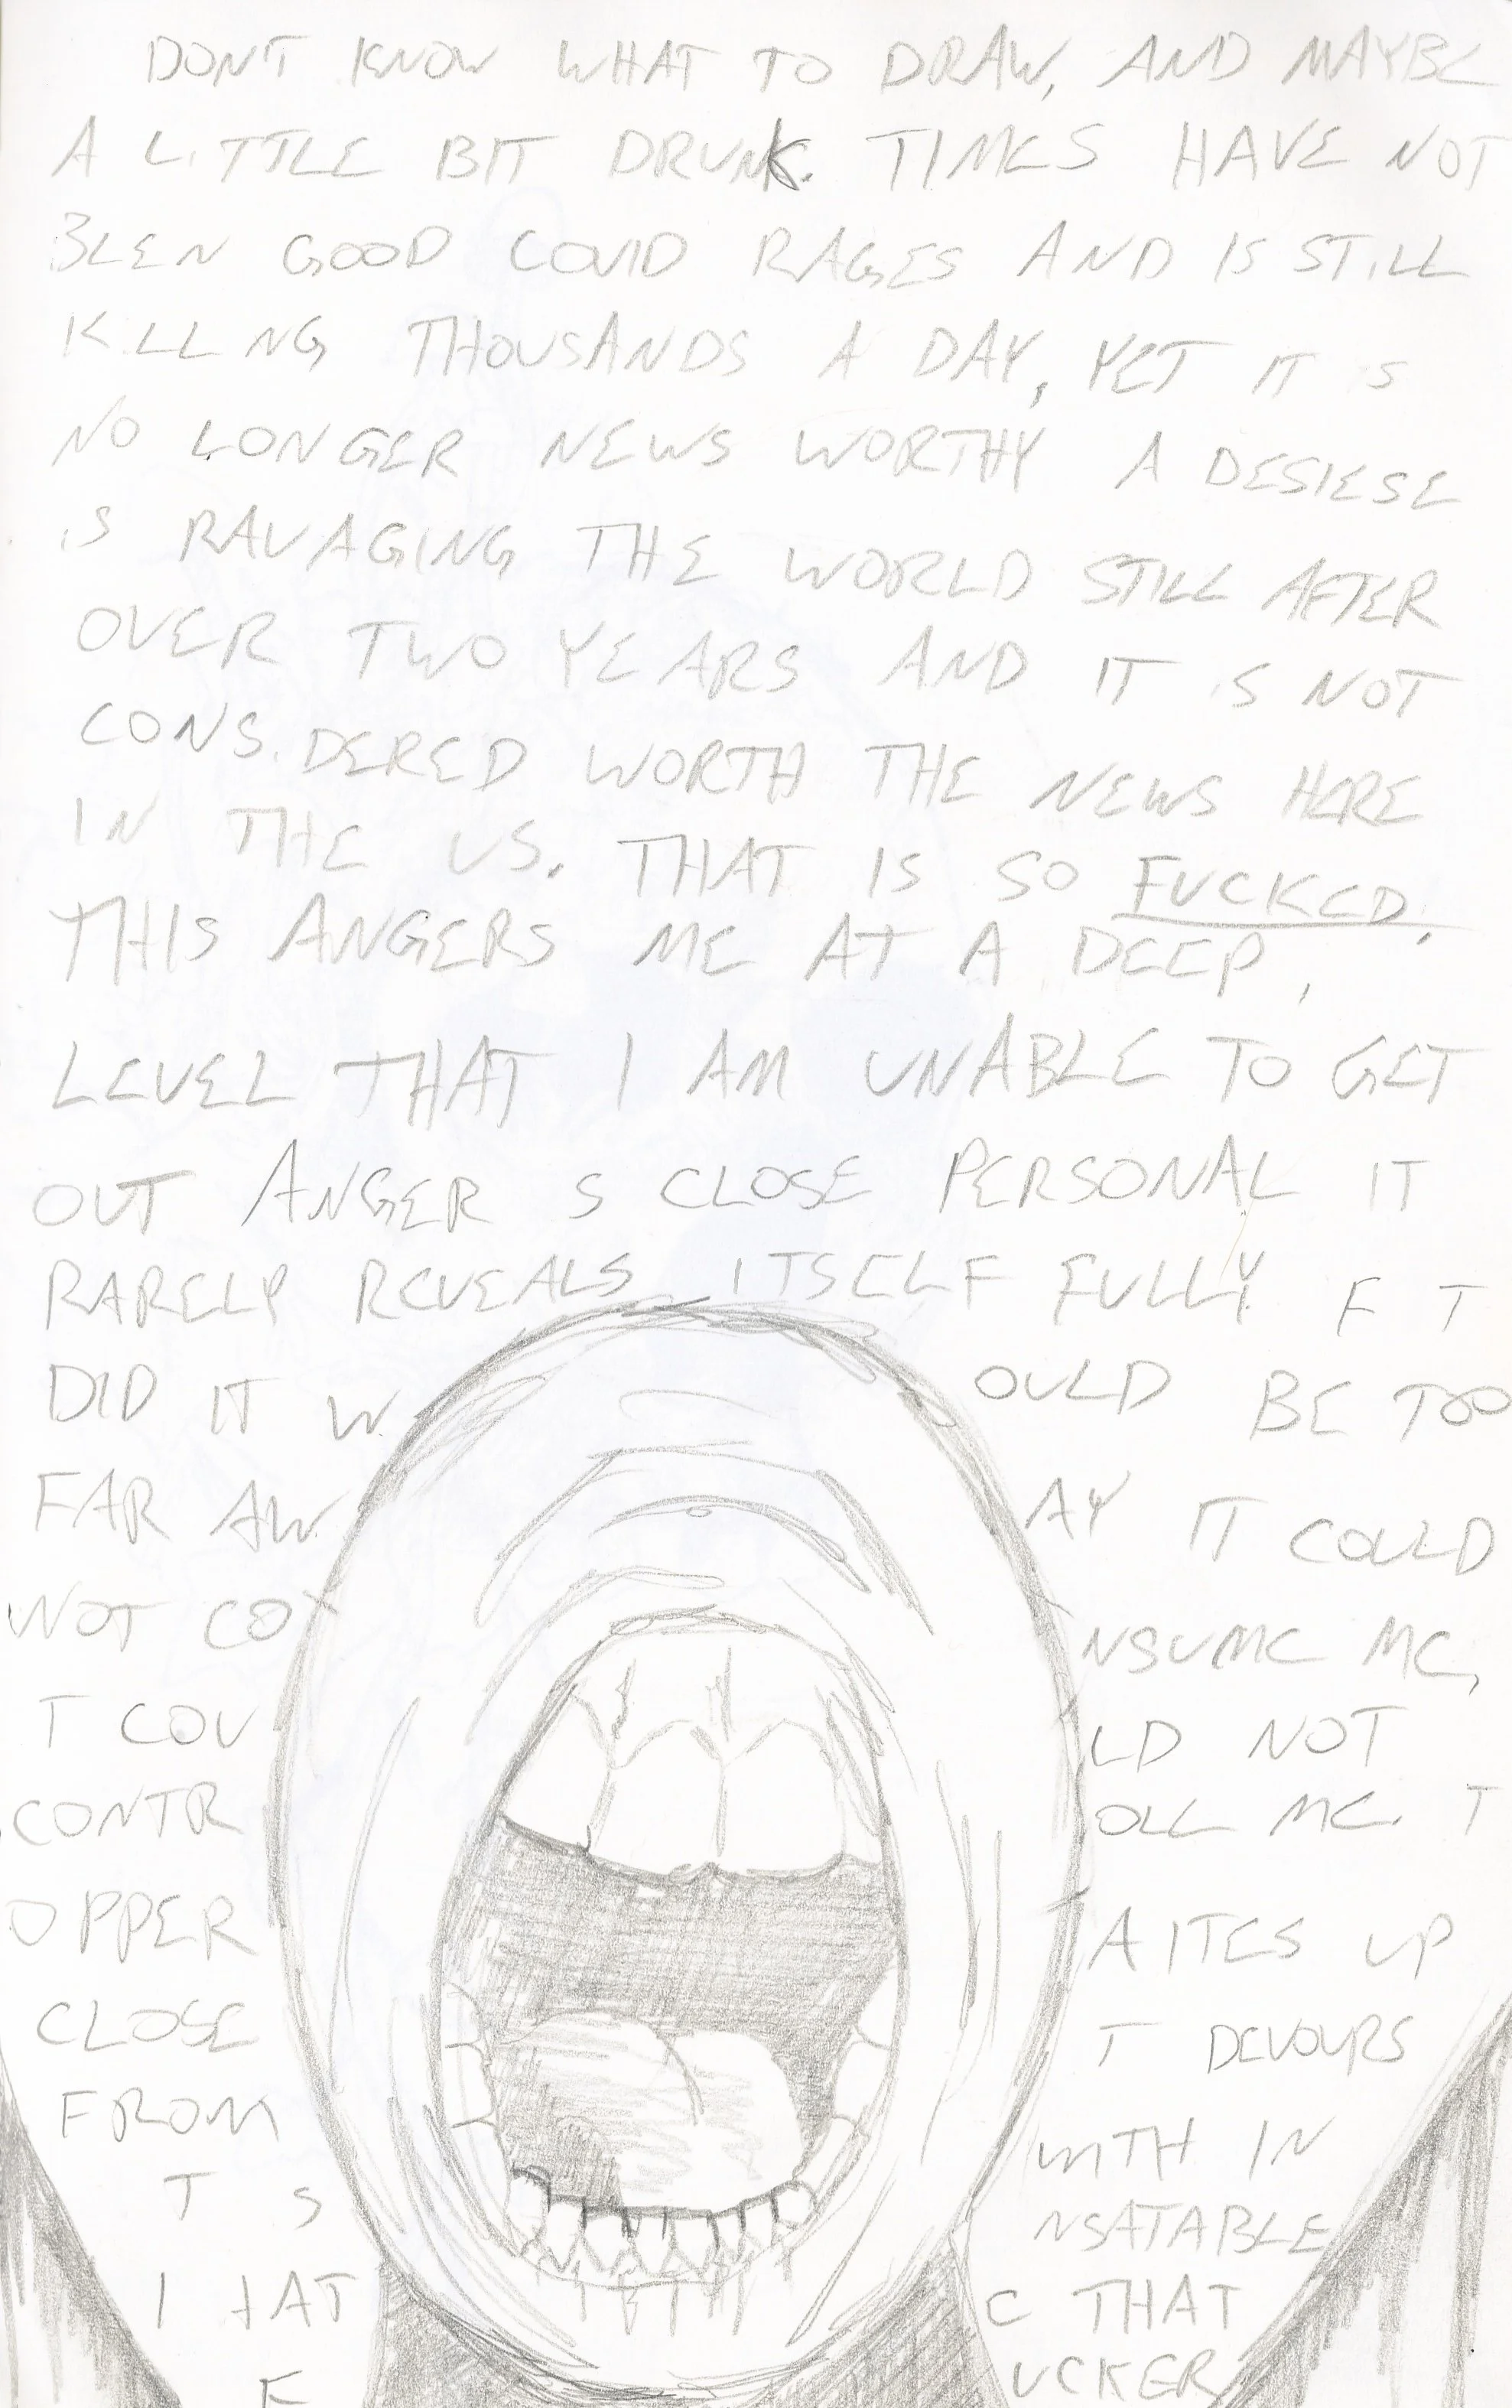 DONT KNOW WHAT TO DRAW, AND MAYBE
A LITTLE BIT DRUNK. TIMES HAVE NOT
BEEN GOOD COVID RAGES AND IS STILL
KILLING THOUSANDS A DAY, YET IT IS
NO LONGER NEWS WORTHY A DESIESE
IS RAVAGING THE WORLD STILL AFTER
OVER TWO YEARS AND IT IS NOT
CONSIDERED WORTH THE NEWS HERE
IN THE US. THAT IS SO FUCKED.
THIS ANGERS ME AT A DEEP,
LEVEL THAT I AM UNABLE TO GET
OUT ANGER S CLOSE PERSONAL IT
RARELY REVEALS ITSELF FULLY F T
DID IT W OULD BE TOO
FAR AW AY IT COULD
NOT CO NSUME ME,
T COU LD NOT
CONTR OLL ME. T
OPPER AITES UP
CLOSE T DEVOURS
FROM WITH IN
T S NSATABLE
I HAT E THAT
F UCKER